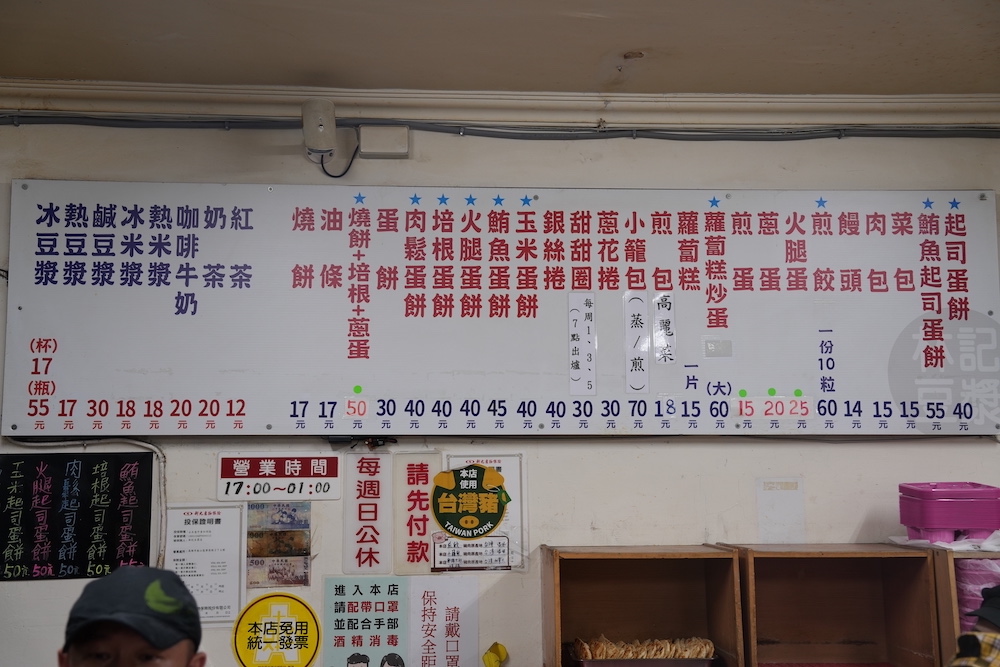 冰豆漿 (杯) 17 (瓶) 55元
熱豆漿 17元
鹹豆漿 30元
冰米漿 18元
熱米漿 18元
咖啡牛奶 20元
奶茶 20元
紅茶 12元
燒餅 17元
油條 17元
燒餅+培根+蔥蛋 50元
蛋餅 30元
肉鬆蛋餅 40元
培根蛋餅 40元
火腿蛋餅 40元
鮪魚蛋餅 45元
玉米蛋餅 40元
銀絲捲 40元
甜甜圈 每周1、3、5 (7點出爐) 30元
蔥花捲 30元
小籠包 (蒸/煎) 70元
煎包 高麗菜 18元
蘿蔔糕 一片 15元
蘿蔔糕炒蛋 (大) 60元
煎蛋 15元
蔥蛋 20元
火腿蛋 25元
煎餃 一份10粒 60元
饅頭 14元
肉包 15元
菜包 15元
鮪魚起司蛋餅 55元
起司蛋餅 40元
玉米起司蛋餅 50元
火腿起司蛋餅 50元
肉鬆起司蛋餅 50元
培根起司蛋餅 50元
鮪魚起司蛋餅
營業時間
17:00~01:00
每週日公休
請先付款
本店使用
台灣豬
TAIWAN PORK
投保證明書
1000
500
本店免用
統一發票
進入本店
請配帶口罩
並配合手部
酒精消毒
請戴口罩
保持安全距